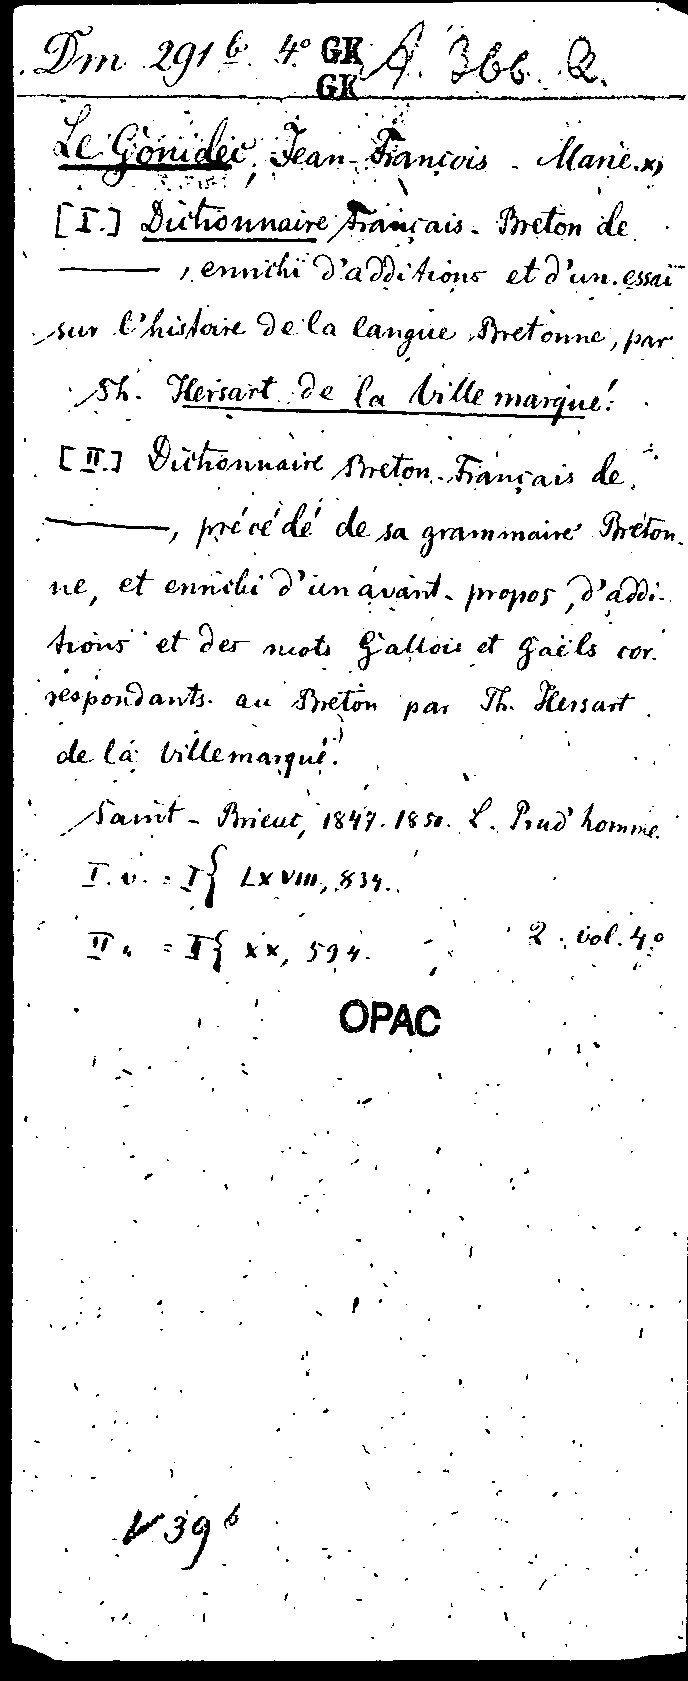 Dm 291 b. 4° GK A. 366. R.
GK
Le Gonidec, Jean-François-Marie. x)
[I.] Dictionnaire Français-Breton de
———, enrichi d'additions et d'un essai
sur l'histoire de la langue Bretonne, par
Th. Hersart de la Villemarqué.
[II.] Dictionnaire Breton-Français de
———, précédé de sa grammaire Breton-
ne, et enrichi d'un avant-propos, d'addi-
tions et des mots Gallois et Gaëls cor-
respondants au Breton par Th. Hersart
de la Villemarqué.
Saint-Brieuc, 1847-1850. L. Prud'homme.
I. v. = I{ LXVIII, 834.
II " = I{ XX, 594. 2 vol. 4°
OPAC
V 39 b